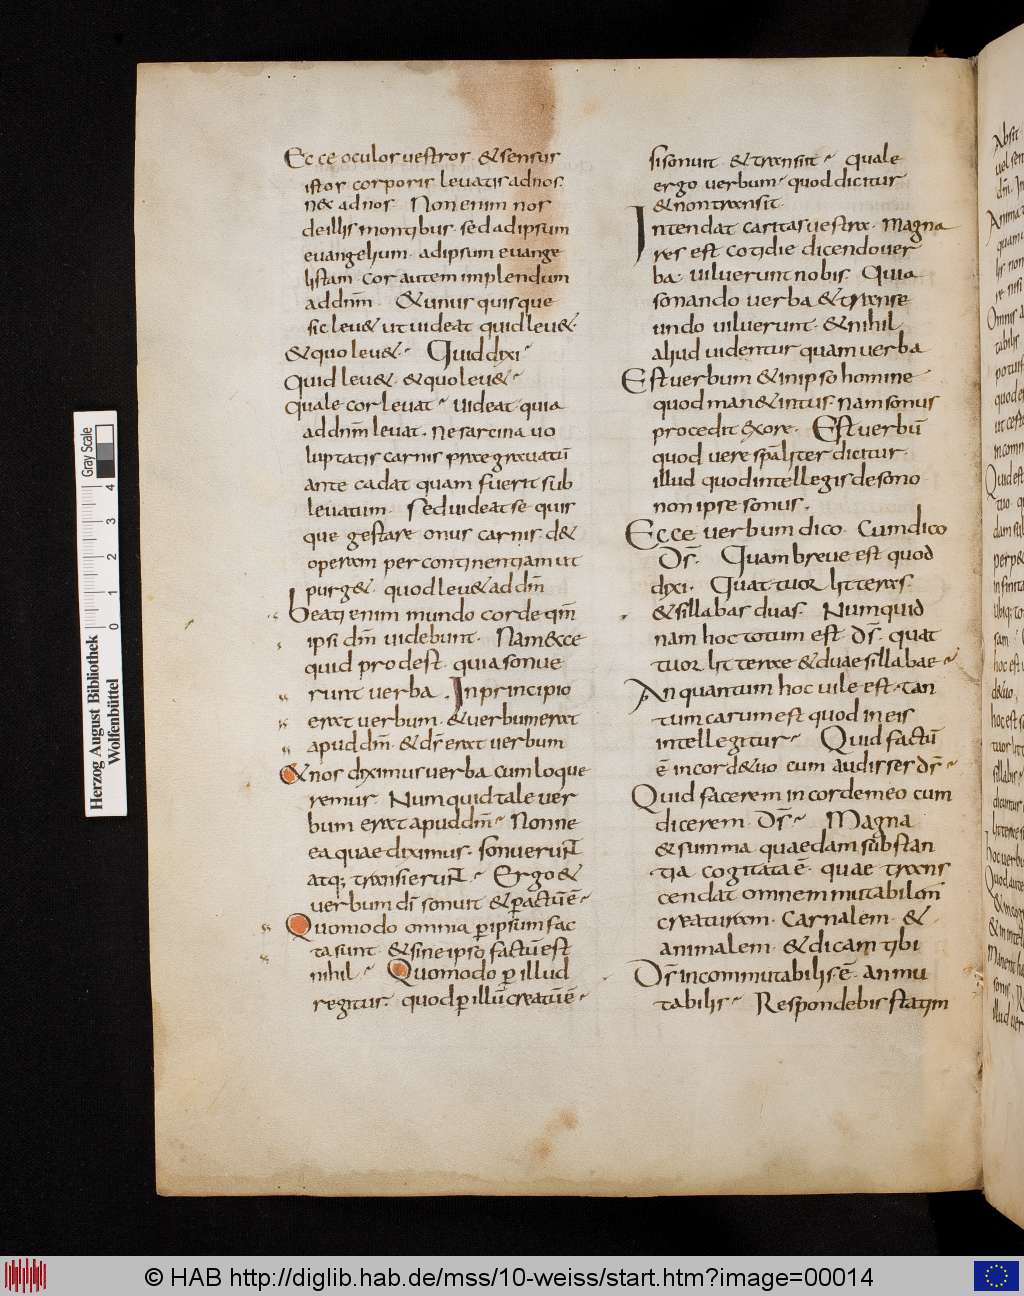 Ecce oculos uestros · & sensus
istos corporis leuatis ad nos ·
nec ad nos · Non enim nos
de illis montibus · sed ad ipsum
euangelium · ad ipsum euange
listam · Cor autem implendum
ad dnm̄ · & unus quisque
sic leu& ut uideat quid leu& ·
& quo leu& · Quid dixi ·
Quid leu& · & quo leu& ·
Quale cor leuat · uideat quia
ad dnm̄ leuat · ne sarcina uo
luptatis carnis praegrauatū
ante cadat quam fuerit sub
leuatum · Sed uideat se quis
que gestare onus carnis · d&
operam per continentiam ut
purg& · quod leu& ad dm̄
Beati enim mundo corde qm̄
ipsi dm̄ uidebunt · Nam ecce
quid prodest · quia sonue
runt uerba · In principio
erat uerbum · & uerbum erat
apud dm̄ · & ds̄ erat uerbum
& nos diximus uerba cum loque
remur · Numquid tale uer
bum erat apud dm̄ · Nonne
ea quae diximus · sonuerunt
atq; transierunt · Ergo &
uerbum dī sonuit & ꝑactū ē ·
Quomodo omnia ꝑ ipsum fac
ta sunt · & sine ipso factū est
nihil · Quomodo ꝑ illud
regitur · quod ꝑ illū creatū ē ·
si sonuit · & transiit · quale
ergo uerbum · quod dicitur
& non transit ·
Intendat caritas uestra · Magna
res est cotidie dicendo uer
ba · uiluerunt nobis · Quia
sonando uerba & transe
undo uiluerunt · & nihil
aliud uidentur quam uerba
Est uerbum & in ipso homine
quod man& intus · nam sonus
procedit ex ore · Est uerbū
quod uere spāliter dicitur ·
illud quod intellegis de sono
non ipse sonus ·
Ecce uerbum dico · Cum dico
Ds̄ · Quam breue est quod
dixi · Quattuor litteras ·
& sillabas duas · Numquid
nam hoc totum est ds̄ · quat
tuor litterae & duae sillabae ·
An quantum hoc uile est · tan
tum carum est quod in eis
intellegitur · Quid factū
ē in corde tuo cum audisses ds̄ ·
Quid facerem in corde meo cum
dicerem · Ds̄ · Magna
& summa quaedam substan
tia cogitata ē · quae trans
cendat omnem mutabilem
creaturam · Carnalem · &
animalem · & dicam tibi
Ds̄ incommutabilis ē · an mu
tabilis · Respondebis statim
Herzog August Bibliothek
Wolfenbüttel
Gray Scale
0 1 2 3 4
© HAB http://diglib.hab.de/mss/10-weiss/start.htm?image=00014